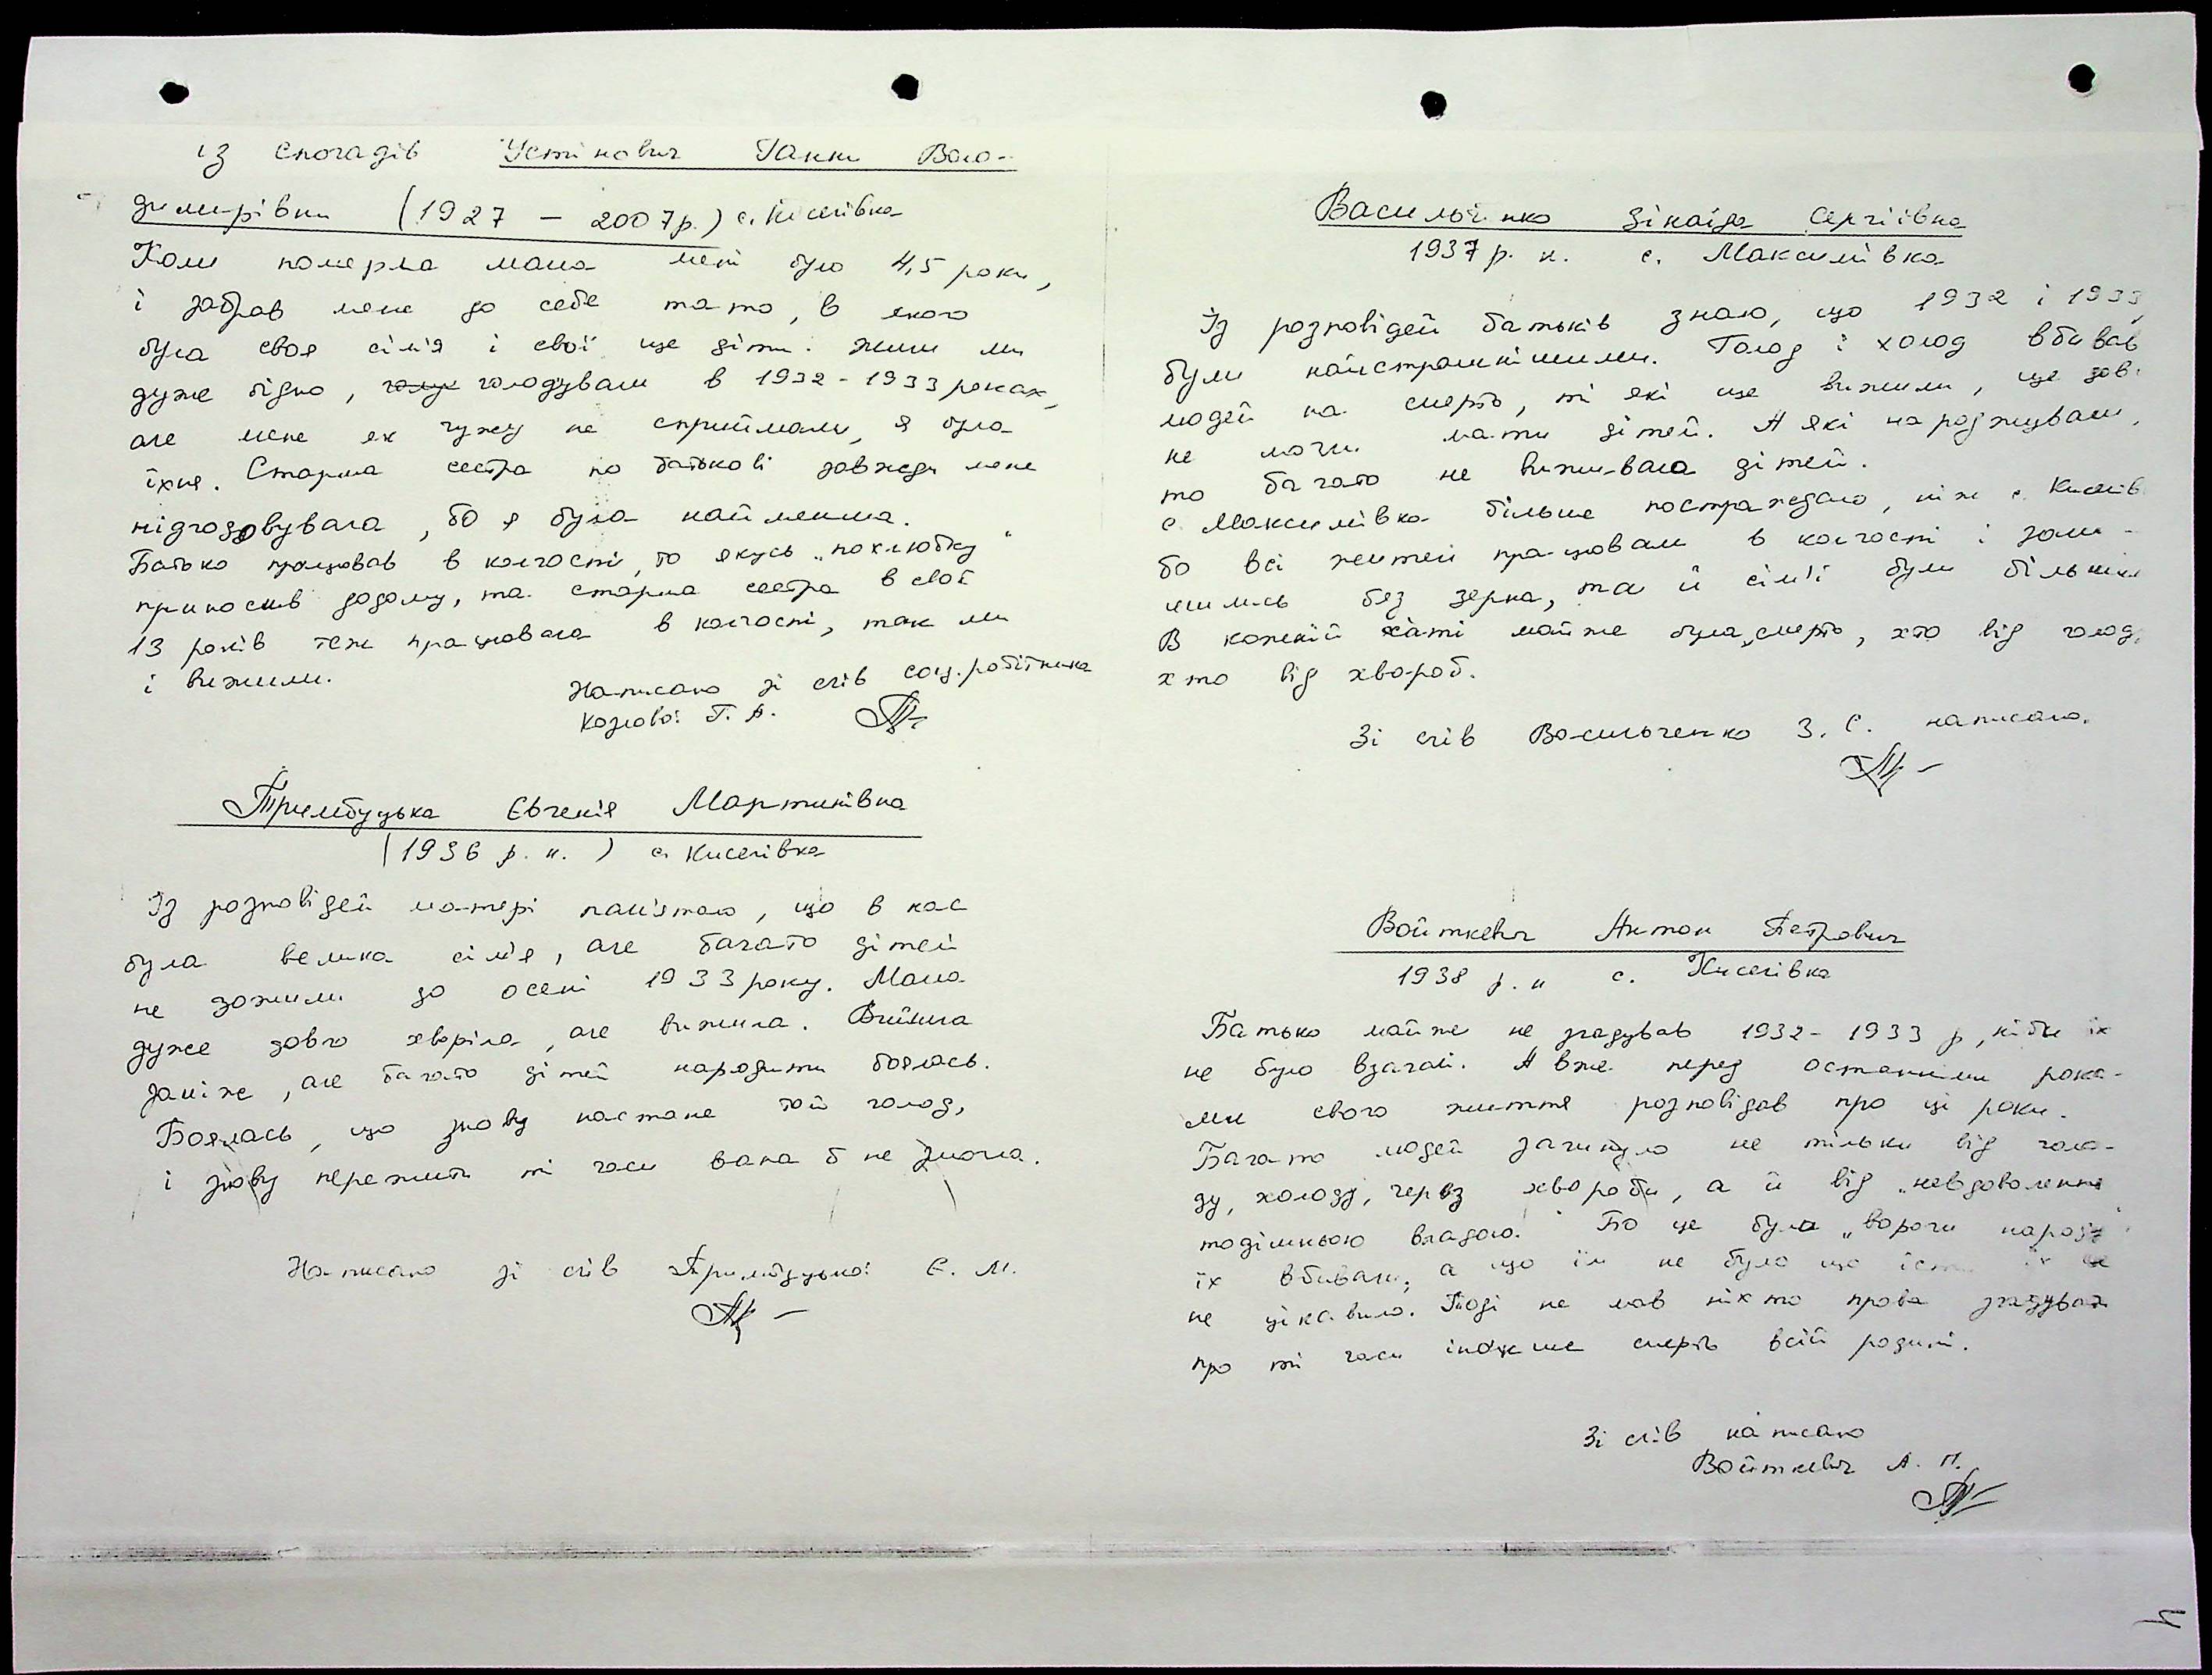 із спогадів Устінович Ганни Воло-
димирівни (1927 – 2007р.) с. Киселівка
Коли померла мама мені було 4,5 роки,
і забрав мене до себе тато, в якого
була своя сім'я і свої ще діти. Жили ми
дуже бідно, голодували в 1932-1933 роках,
але мене як чужу не сприймали, я була
їхня. Старша сестра по батькові завжди мене
підгодовувала, бо я була найменша.
Батько працював в колгоспі, то якусь „похлюбку"
приносив додому, та старша сестра в свої
13 років теж працювала в колгоспі, так ми
і вижили.
Написано зі слів соц.робітника
Козлової Г. А.
Тримбуцька Євгенія Мартинівна
(1936 р. н. ) с. Киселівка
Із розповідей матері пам'ятаю, що в нас
була велика сім'я, але багато дітей
не дожили до осені 1933 року. Мама
дуже довго хворіла, але вижила. Вийшла
заміж, але багато дітей народити боялась.
Боялась, що знову настане той голод,
і знову пережити ті часи вона б не змогла.
Написано зі слів Тримбуцької Є. М.
Васильченко Зінаїда Сергіївна
1937 р. н. с. Максимівка
Із розповідей батьків знаю, що 1932 і 1933
були найстрашнішими. Голод і холод вбивав
людей на смерть, ті які ще вижили, ще дов
не могли мати дітей. А які народжували,
то багато не виживала дітей.
с. Максимівка більше постраждало, ніж с. Киселів
бо всі жителі працювали в колгоспі і зали-
шились без зерна, та й сім'ї були більшими
В кожній хаті майже була смерть, хто від голод
хто від хвороб.
Зі слів Васильченко З. С. написано.
Войткевич Антон Петрович
1938 р. н с. Киселівка
Батько майже не згадував 1932-1933 р, ніби їх
не було взагалі. А вже перед останніми рока-
ми свого життя розповідав про ці роки.
Багато людей загинуло не тільки від голо-
ду, холоду, через хвороби, а й від „невдоволення
тодішньою владою." Бо це були „вороги народу"
їх вбивали, а що їм не було що їсти їх
не цікавило. Тоді не мав ніхто права згадувати
про ті часи інакше смерть всій родині.
Зі слів написано
Войткевич А. П.